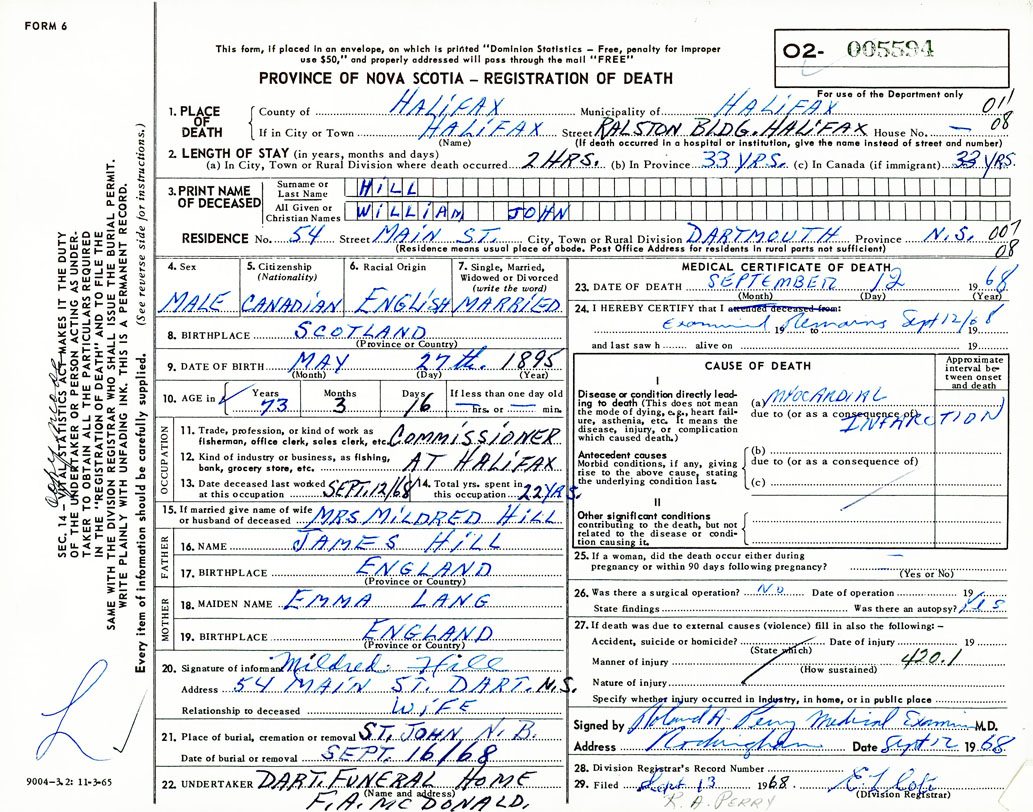 FORM 6
This form, if placed in an envelope, on which is printed "Dominion Statistics – Free, penalty for improper
use $50," and properly addressed will pass through the mail "FREE"
O2- 005594
PROVINCE OF NOVA SCOTIA – REGISTRATION OF DEATH
For use of the Department only
011
08
1. PLACE OF DEATH
County of HALIFAX Municipality of HALIFAX
If in City or Town HALIFAX Street RALSTON BLDG. HALIFAX House No. —
(Name) (If death occurred in a hospital or institution, give the name instead of street and number)
2. LENGTH OF STAY (in years, months and days)
(a) In City, Town or Rural Division where death occurred 2 HRS. (b) In Province 33 YRS. (c) In Canada (if immigrant) 33 YRS.
3. PRINT NAME OF DECEASED
Surname or Last Name HILL
All Given or Christian Names WILLIAM JOHN
RESIDENCE No. 54 Street MAIN ST. City, Town or Rural Division DARTMOUTH Province N.S. 007
08
(Residence means usual place of abode. Post Office Address for residents in rural parts not sufficient)
4. Sex
MALE
5. Citizenship (Nationality)
CANADIAN
6. Racial Origin
ENGLISH
7. Single, Married, Widowed or Divorced (write the word)
MARRIED
8. BIRTHPLACE SCOTLAND
(Province or Country)
9. DATE OF BIRTH MAY 27th. 1895
(Month) (Day) (Year)
10. AGE in Years 73 Months 3 Days 16 If less than one day old — hrs. or — min.
OCCUPATION
11. Trade, profession or kind of work as
fisherman, office clerk, sales clerk, etc. COMMISSIONER
12. Kind of industry or business, as fishing,
bank, grocery store, etc. AT HALIFAX
13. Date deceased last worked at this occupation SEPT. 12/68
14. Total yrs. spent in this occupation 22 YRS.
15. If married give name of wife
or husband of deceased MRS. MILDRED HILL
FATHER
16. NAME JAMES HILL
17. BIRTHPLACE ENGLAND
(Province or Country)
MOTHER
18. MAIDEN NAME EMMA LANG
19. BIRTHPLACE ENGLAND
(Province or Country)
20. Signature of informant Mildred Hill
Address 54 MAIN ST. DART. N.S.
Relationship to deceased WIFE
21. Place of burial, cremation or removal ST. JOHN, N.B.
Date of burial or removal SEPT. 16/68
22. UNDERTAKER DART. FUNERAL HOME
(Name and address)
F.A. MCDONALD.
MEDICAL CERTIFICATE OF DEATH
23. DATE OF DEATH SEPTEMBER 12 1968
(Month) (Day) (Year)
24. I HEREBY CERTIFY that I attended deceased from:
Examined Remains Sept 12/68
19 to 19
and last saw h alive on 19
CAUSE OF DEATH
Approximate interval between onset and death
I
Disease or condition directly leading to death (This does not mean
the mode of dying, e.g., heart failure, asthenia, etc. It means the
disease, injury, or complication
which caused death.)
(a) MYOCARDIAL
due to (or as a consequence of)
INFARCTION
Antecedent causes
Morbid conditions, if any, giving
rise to the above cause, stating
the underlying condition last.
(b)
due to (or as a consequence of)
(c)
II
Other significant conditions
contributing to the death, but not
related to the disease or condition causing it.
25. If a woman, did the death occur either during
pregnancy or within 90 days following pregnancy? —
(Yes or No)
26. Was there a surgical operation? NO Date of operation 19
State findings Was there an autopsy? YES
27. If death was due to external causes (violence) fill in also the following: –
Accident, suicide or homicide? Date of injury 19
(State which)
Manner of injury 420.1
(How sustained)
Nature of injury
Specify whether injury occurred in industry, in home, or in public place
Signed by Roland A. Perry Medical Examiner M.D.
Address Rockingham Date Sept 12 1968
28. Division Registrar's Record Number
29. Filed Sept 13 1968
(Division Registrar)
R. A. PERRY
SEC. 14 – VITAL STATISTICS ACT MAKES IT THE DUTY
OF THE UNDERTAKER OR PERSON ACTING AS UNDER-
TAKER TO OBTAIN ALL THE PARTICULARS REQUIRED
IN THE "REGISTRATION OF DEATH" AND TO FILE THE
SAME WITH THE DIVISION REGISTRAR WHO SHALL ISSUE THE BURIAL PERMIT.
WRITE PLAINLY WITH UNFADING INK. THIS IS A PERMANENT RECORD.
Every item of information should be carefully supplied. (See reverse side for instructions.)
9004-3.21: 11-3-65